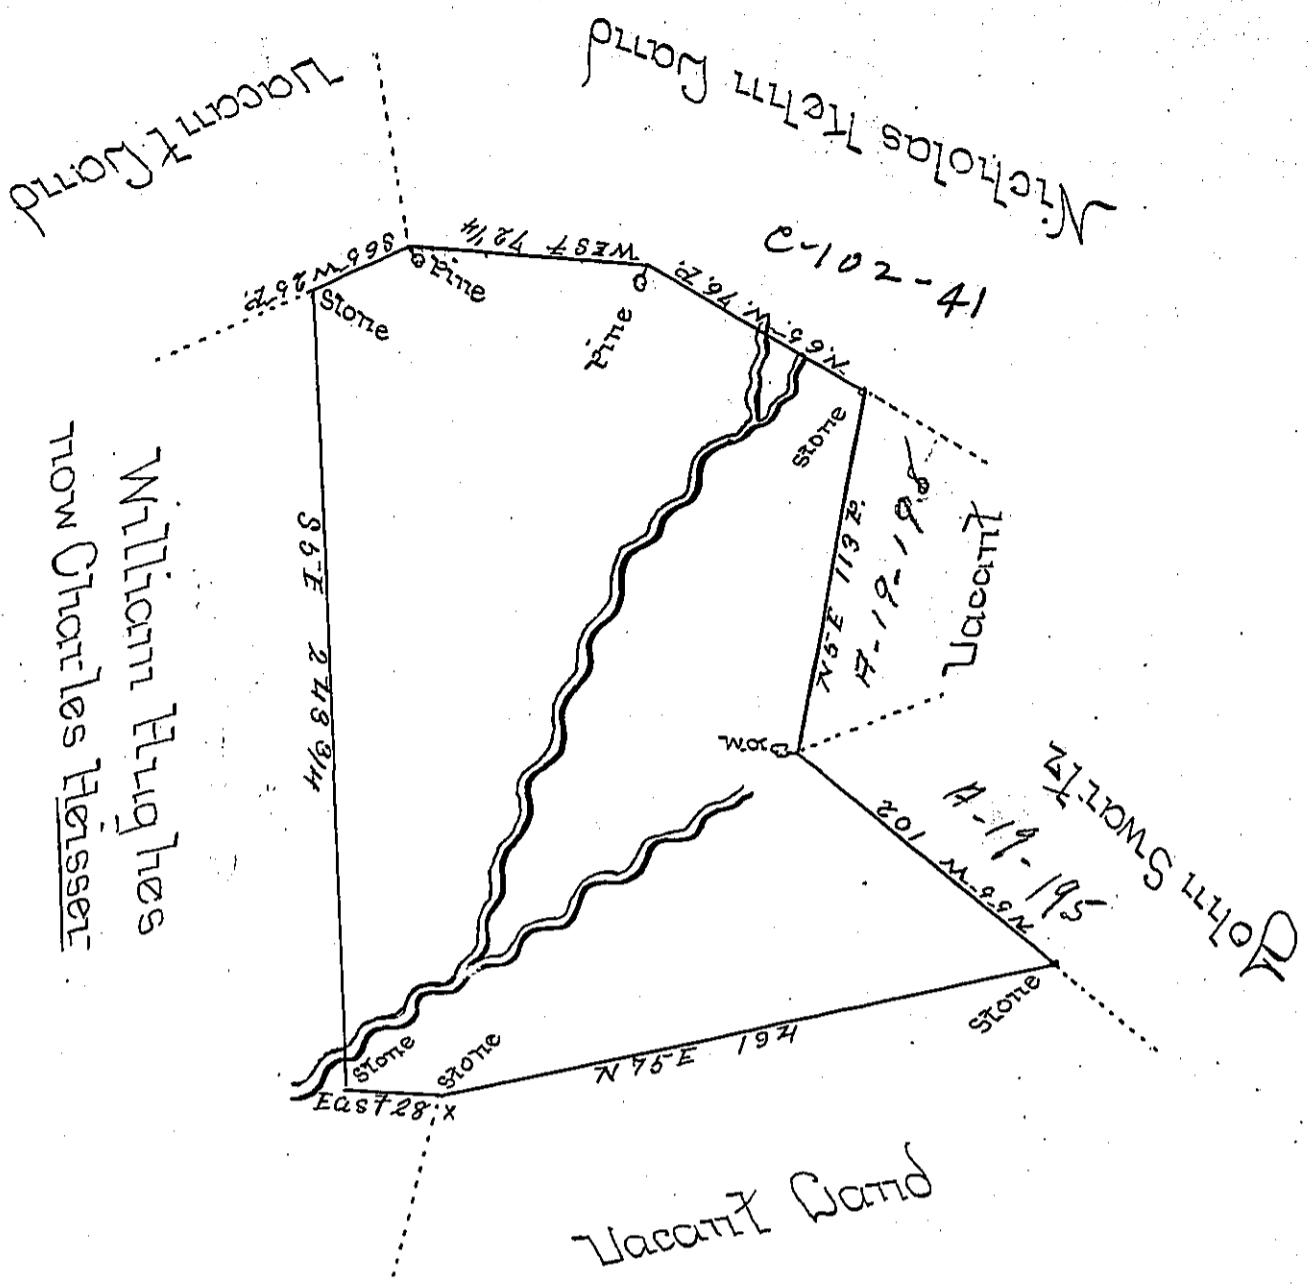 Vacant Land
Nicholas Hehn Land
C-102-41
S65W25.P.
Stone
WEST 72 1/4
Pine
Pine
N.65.W.76.P.
Stone
N5E 113 P.
A-19-198
Vacant
John Swartz
A-19-195
N55W 102
Stone
N75E 194
Stone
East 28
x
Stone
S5E 243 3/4
William Hughes
now Charles Heisser
Vacant Land